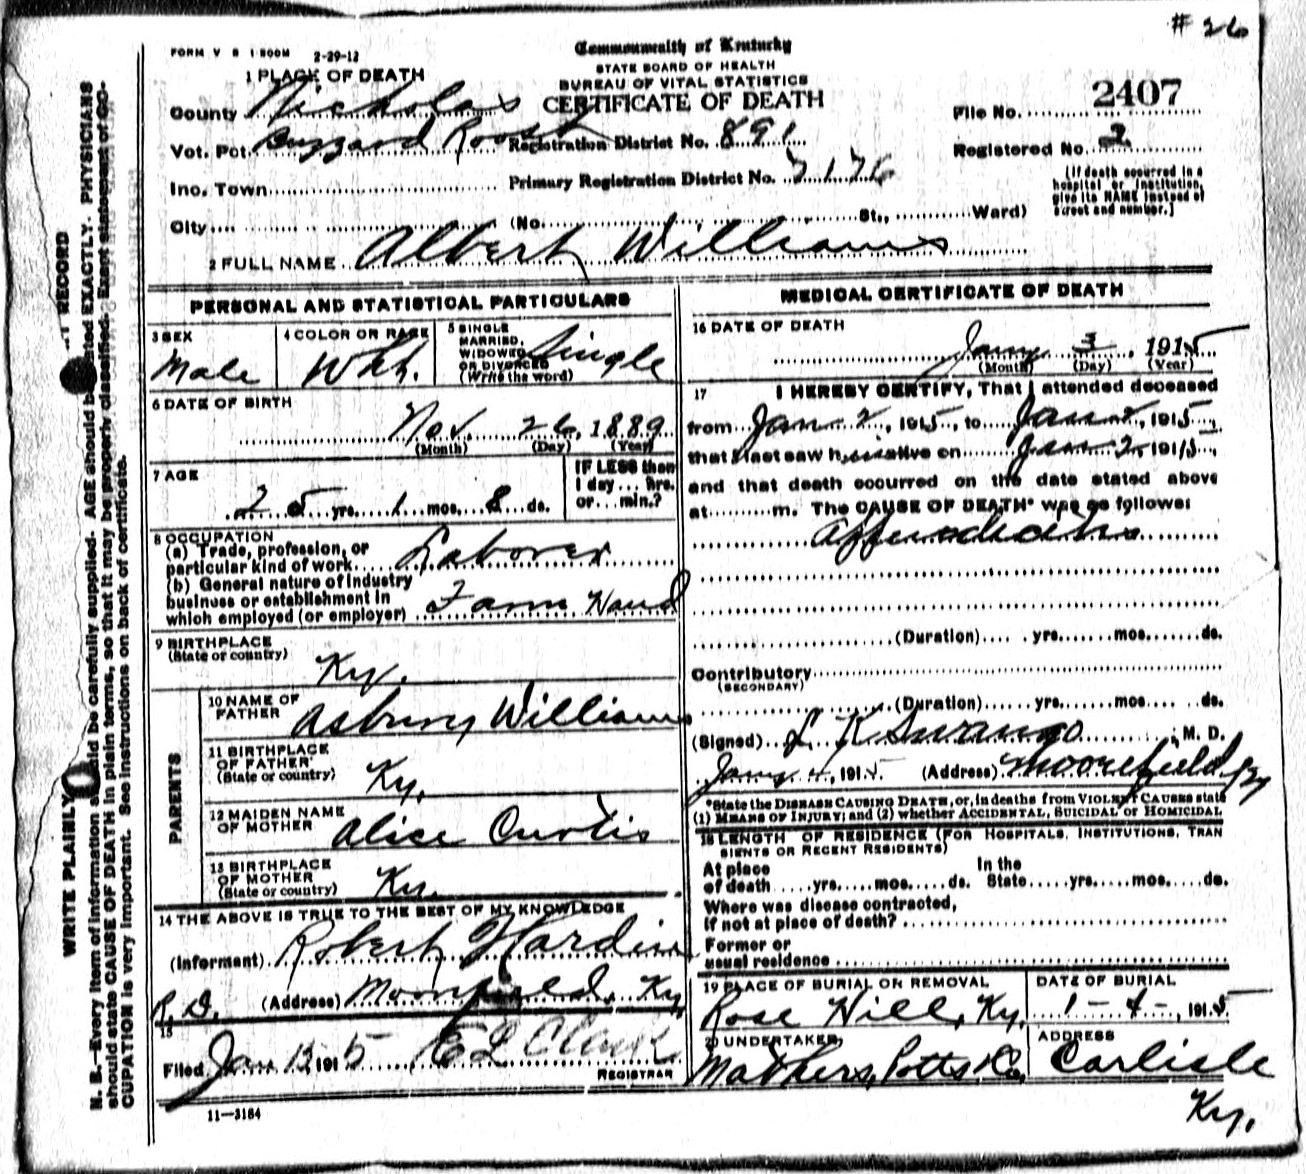 # 26
FORM V S 1-500M 2-29-12
Commonwealth of Kentucky
STATE BOARD OF HEALTH
BUREAU OF VITAL STATISTICS
CERTIFICATE OF DEATH
1 PLACE OF DEATH
County Nicholas
Vot. Pct. Buzzard Roost
Inc. Town
City (No. St., Ward)
Registration District No. 891
Primary Registration District No. 7176
File No. 2407
Registered No. 2
[If death occurred in a
hospital or institution,
give its NAME instead of
street and number.]
2 FULL NAME Albert Williams
PERSONAL AND STATISTICAL PARTICULARS
3 SEX
Male
4 COLOR OR RACE
Wht.
5 SINGLE
MARRIED,
WIDOWED
OR DIVORCED
(Write the word)
Single
6 DATE OF BIRTH
Nov. 26, 1889
(Month) (Day) (Year)
7 AGE
25 yrs. 1 mos. 8 ds.
IF LESS than
1 day... hrs.
or... min.?
8 OCCUPATION
(a) Trade, profession, or
particular kind of work Laborer
(b) General nature of industry
business or establishment in
which employed (or employer) Farm Hand
9 BIRTHPLACE
(State or country)
Ky.
PARENTS
10 NAME OF
FATHER Asbury Williams
11 BIRTHPLACE
OF FATHER
(State or country) Ky.
12 MAIDEN NAME
OF MOTHER Alice Curtis
13 BIRTHPLACE
OF MOTHER
(State or country) Ky.
14 THE ABOVE IS TRUE TO THE BEST OF MY KNOWLEDGE
(Informant) Robert Hardin
R. D. (Address) Moorefield, Ky.
15
Filed Jan 15 1915 E L Clark
REGISTRAR
11-3184
MEDICAL CERTIFICATE OF DEATH
16 DATE OF DEATH
Jany. 3, 1915
(Month) (Day) (Year)
17 I HEREBY CERTIFY, That I attended deceased
from Jan 2, 1915, to Jan 2, 1915,
that I last saw him alive on Jan 2, 1915,
and that death occurred on the date stated above
at m. The CAUSE OF DEATH* was as follows:
Appendicitis
(Duration) yrs. mos. ds.
Contributory
(SECONDARY)
(Duration) yrs. mos. ds.
(Signed) L K Swango, M. D.
Jany 4, 1915 (Address) Moorefield Ky
*State the DISEASE CAUSING DEATH, or, in deaths from VIOLENT CAUSES state
(1) MEANS OF INJURY; and (2) whether ACCIDENTAL, SUICIDAL or HOMICIDAL
18 LENGTH OF RESIDENCE (FOR HOSPITALS, INSTITUTIONS, TRAN
SIENTS OR RECENT RESIDENTS)
At place In the
of death yrs. mos. ds. State yrs. mos. ds.
Where was disease contracted,
if not at place of death?
Former or
usual residence
19 PLACE OF BURIAL OR REMOVAL
Rose Hill, Ky.
DATE OF BURIAL
1-4-, 1915
20 UNDERTAKER,
Mathers, Potts & Co.
ADDRESS
Carlisle
Ky.
WRITE PLAINLY
RECORD
N. B.—Every item of information should be carefully supplied. AGE should be stated EXACTLY. PHYSICIANS
should state CAUSE OF DEATH in plain terms, so that it may be properly classified. Exact statement of OC-
CUPATION is very important. See instructions on back of certificate.